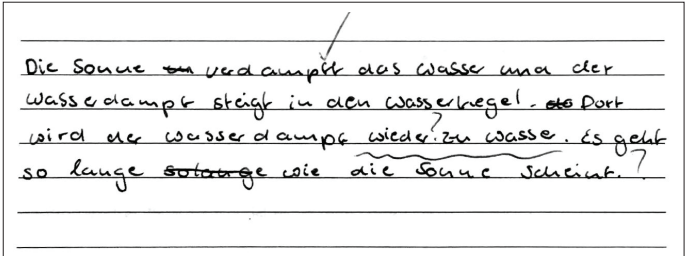 Die Sonne verdampft das Wasser und der
Wasserdampf steigt in den Wasserkegel. Dort
wird der Wasserdampf wieder? zu Wasser. Es geht
so lange solange wie die Sonne scheint. ?